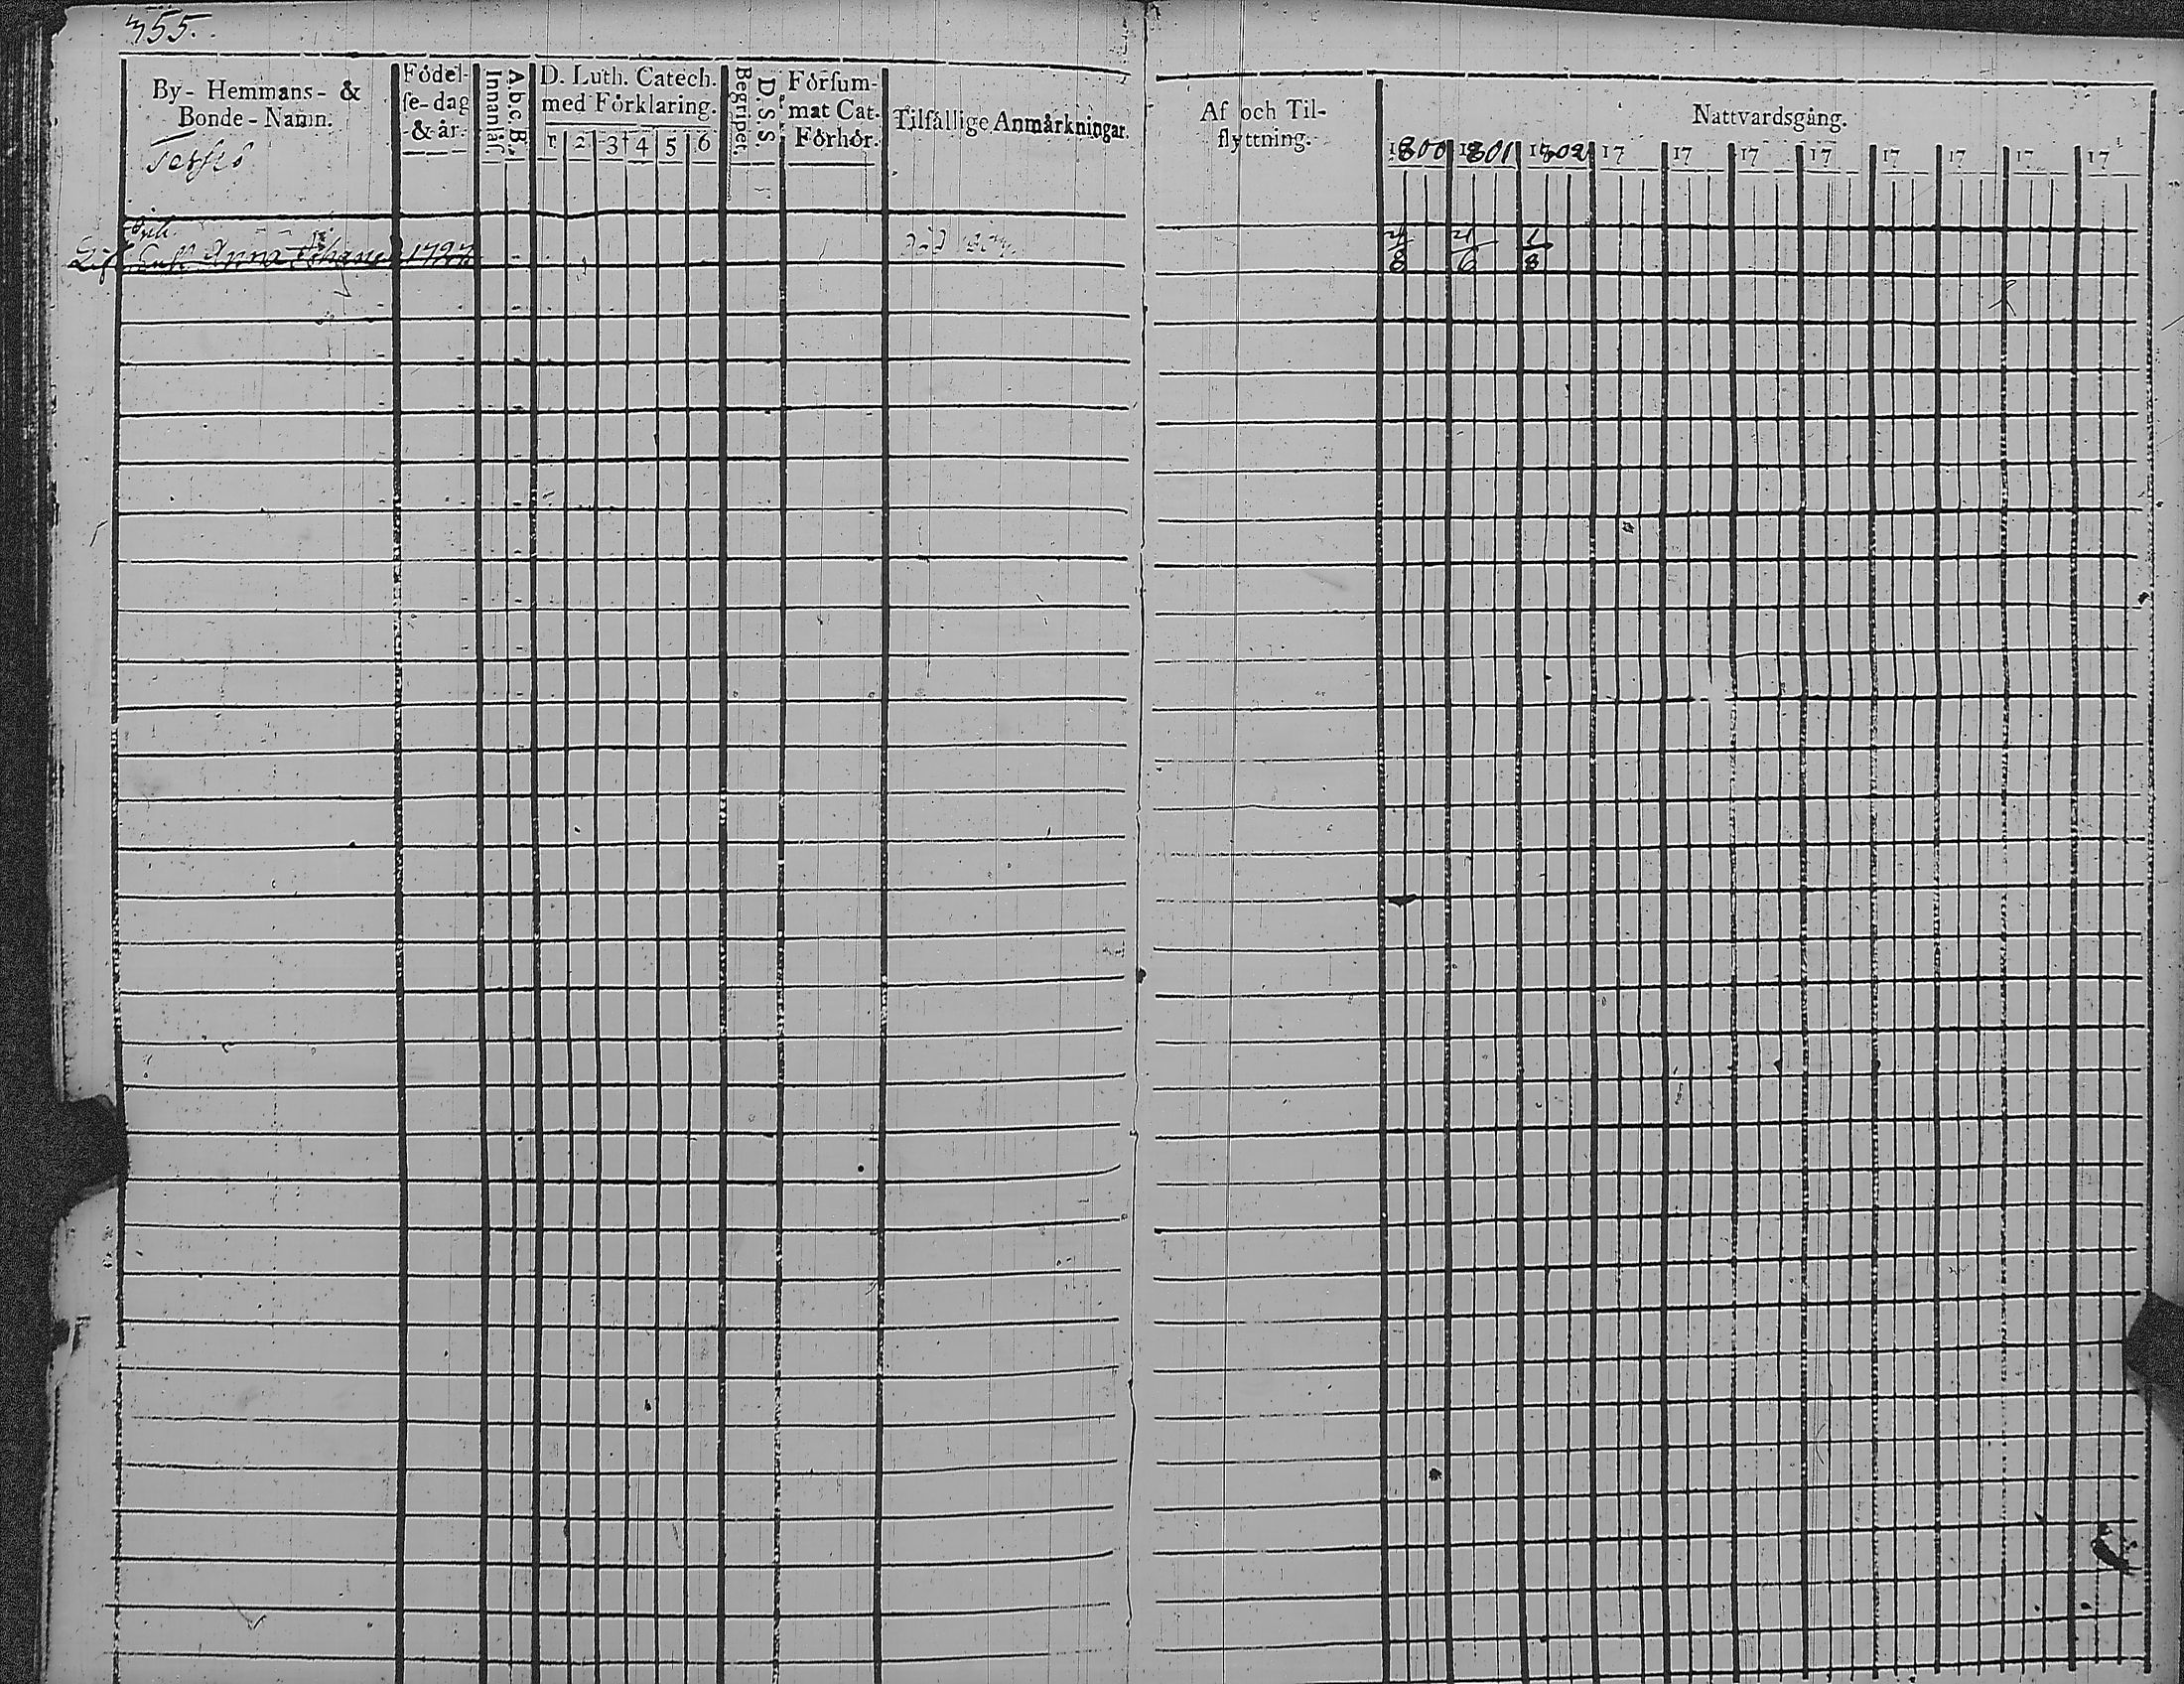 355.
By- Hemmans- &
Bonde-Namn.
Födel-
se-dag
& år.
Innanläs.
A.b.c.B.
D. Luth. Catech.
med Förklaring.
1 2 3 4 5 6
Begripet.
D. S. S.
Försum-
mat Cat.
Förhör.
Tilfällige Anmärkningar.
Af och Til-
flyttning.
Nattvardsgång.
1800 1801 1802 17 17 17 17 17 17 17 17
Enk. Anna 
8 6 8